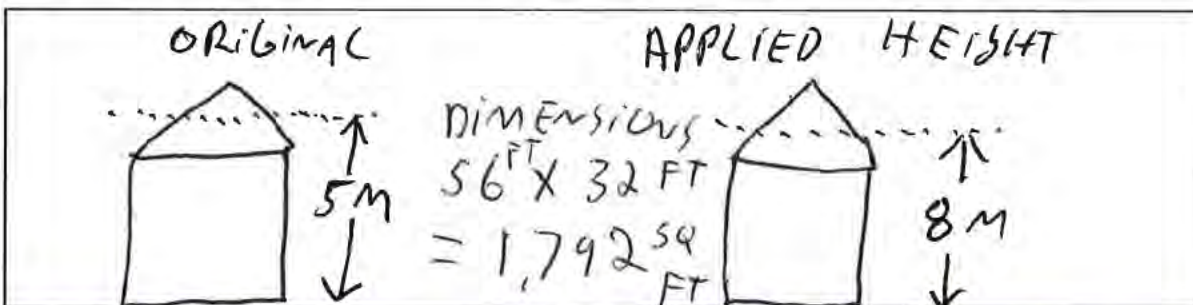 ORIGINAL
APPLIED HEIGHT
DIMENSIONS
56 FT X 32 FT
= 1,792 SQ FT
5M
8M